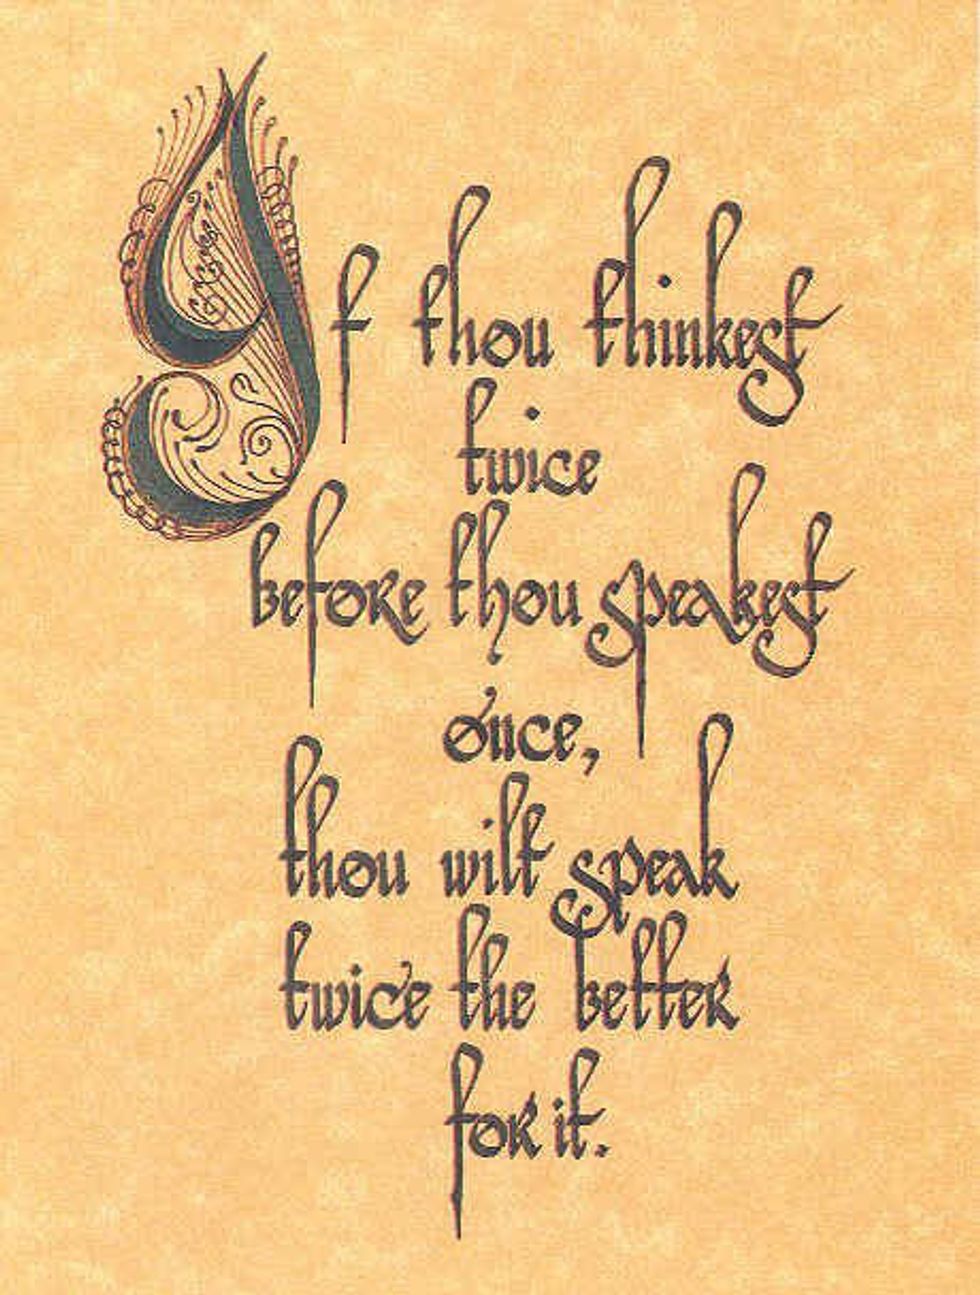 If thou thinkest
twice
before thou speakest
once,
thou wilt speak
twice the better
for it.